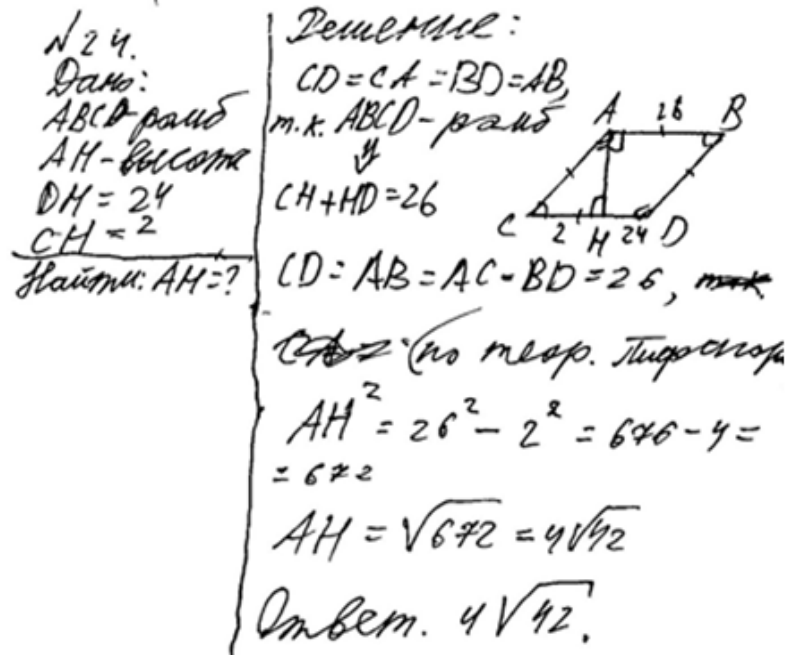 N24.
Дано:
ABCD-ромб
AH-высота
DH = 24
CH = 2
Найти: AH=?
Решение:
CD = CA = BD = AB,
т.к. ABCD - ромб
⇓
CH + HD = 26
A 26 B
C 2 H 24 D
CD = AB = AC = BD = 26,
(по теор. Пифагор
AH² = 26² - 2² = 676 - 4 =
= 672
AH = √672 = 4√42
Ответ. 4√42.